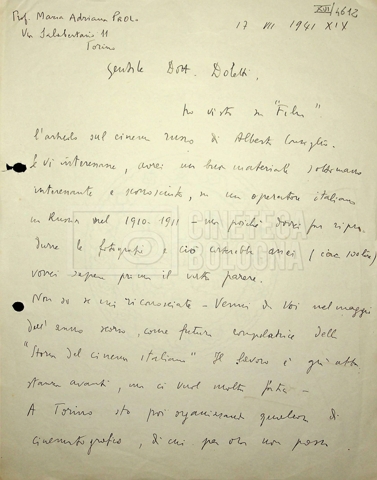 XVI/4612
Prof. Maria Adriana Prolo
Via Salbertrano 11
Torino
17 VII 1941 XIX
Gentile Dott. Doletti,
ho visto su "Film"
l'articolo sul cinema russo di Alberto Consiglio.
Se vi interessasse, avrei un buon materiale
interessante e sconosciuto, su un operatore italiano
in Russia nel 1910-1911 - ma poiché dovrei far ripro-
durre le fotografie e ciò costerebbe assai (circa
vorrei sapere prima il vostro parere.
Non so se mi riconoscete - Venni da Voi nel maggio
dell'anno scorso, come futura compilatrice della
"Storia del cinema italiano" Il lavoro è già abba
stanza avanti, ma ci vuol molta fatica -
A Torino sto poi organizzando qualcosa di
cinematografico, di cui per ora non posso
CINETECA
BOLOGNA